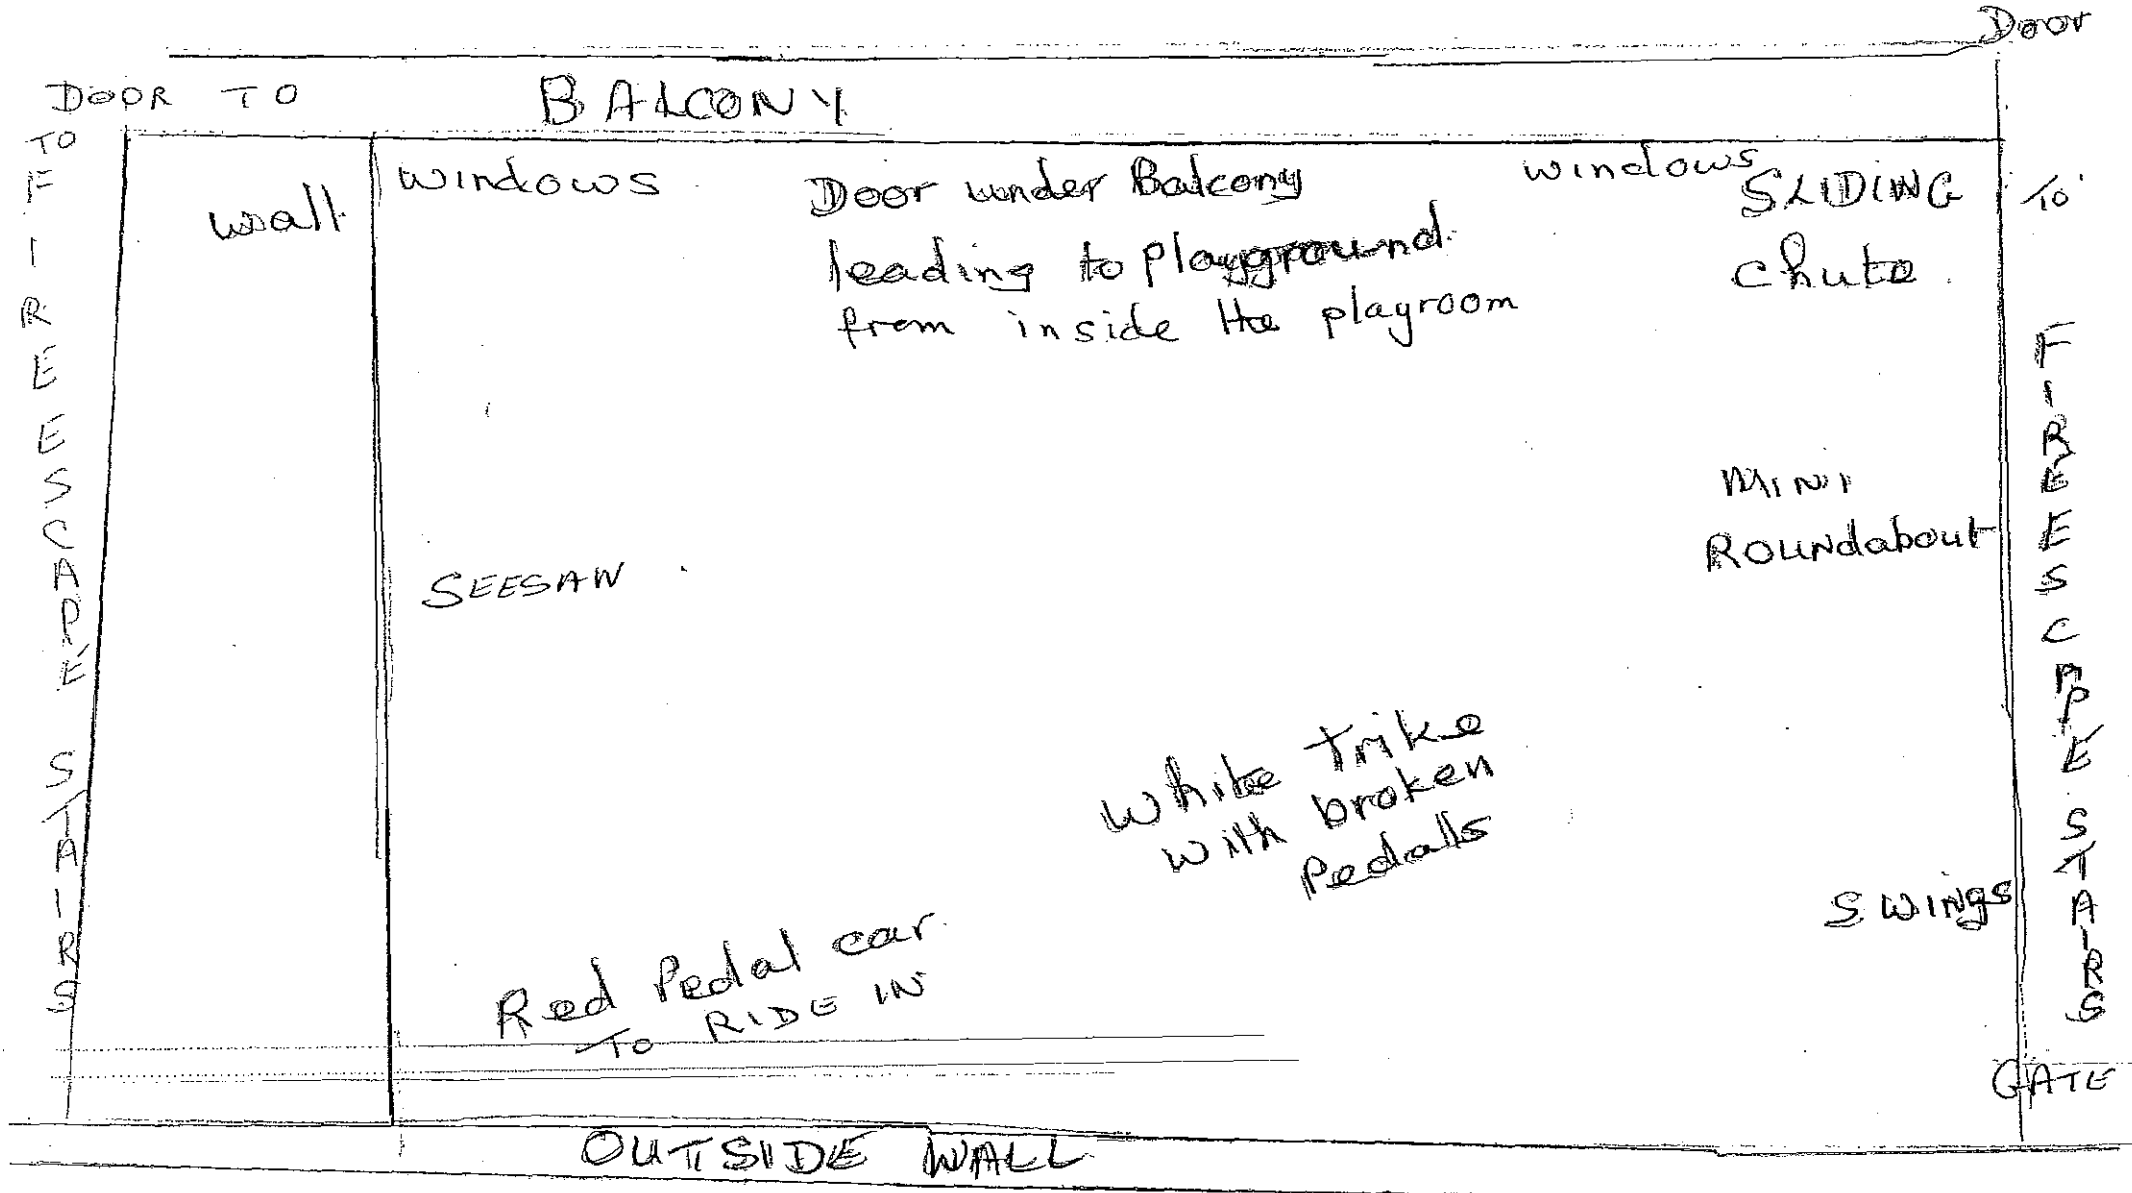 Door
DOOR TO
BALCONY
TO FIRE ESCAPE STAIRS
wall
windows
Door under Balcony
leading to playground
from inside the playroom
windows
SLIDING
chute
TO FIRE ESCAPE STAIRS
MINI
ROUNdabout
SEESAW
White Trike
with broken
Pedalls
SWINgs
Red Pedal car
TO RIDE IN
GATE
OUTSIDE WALL